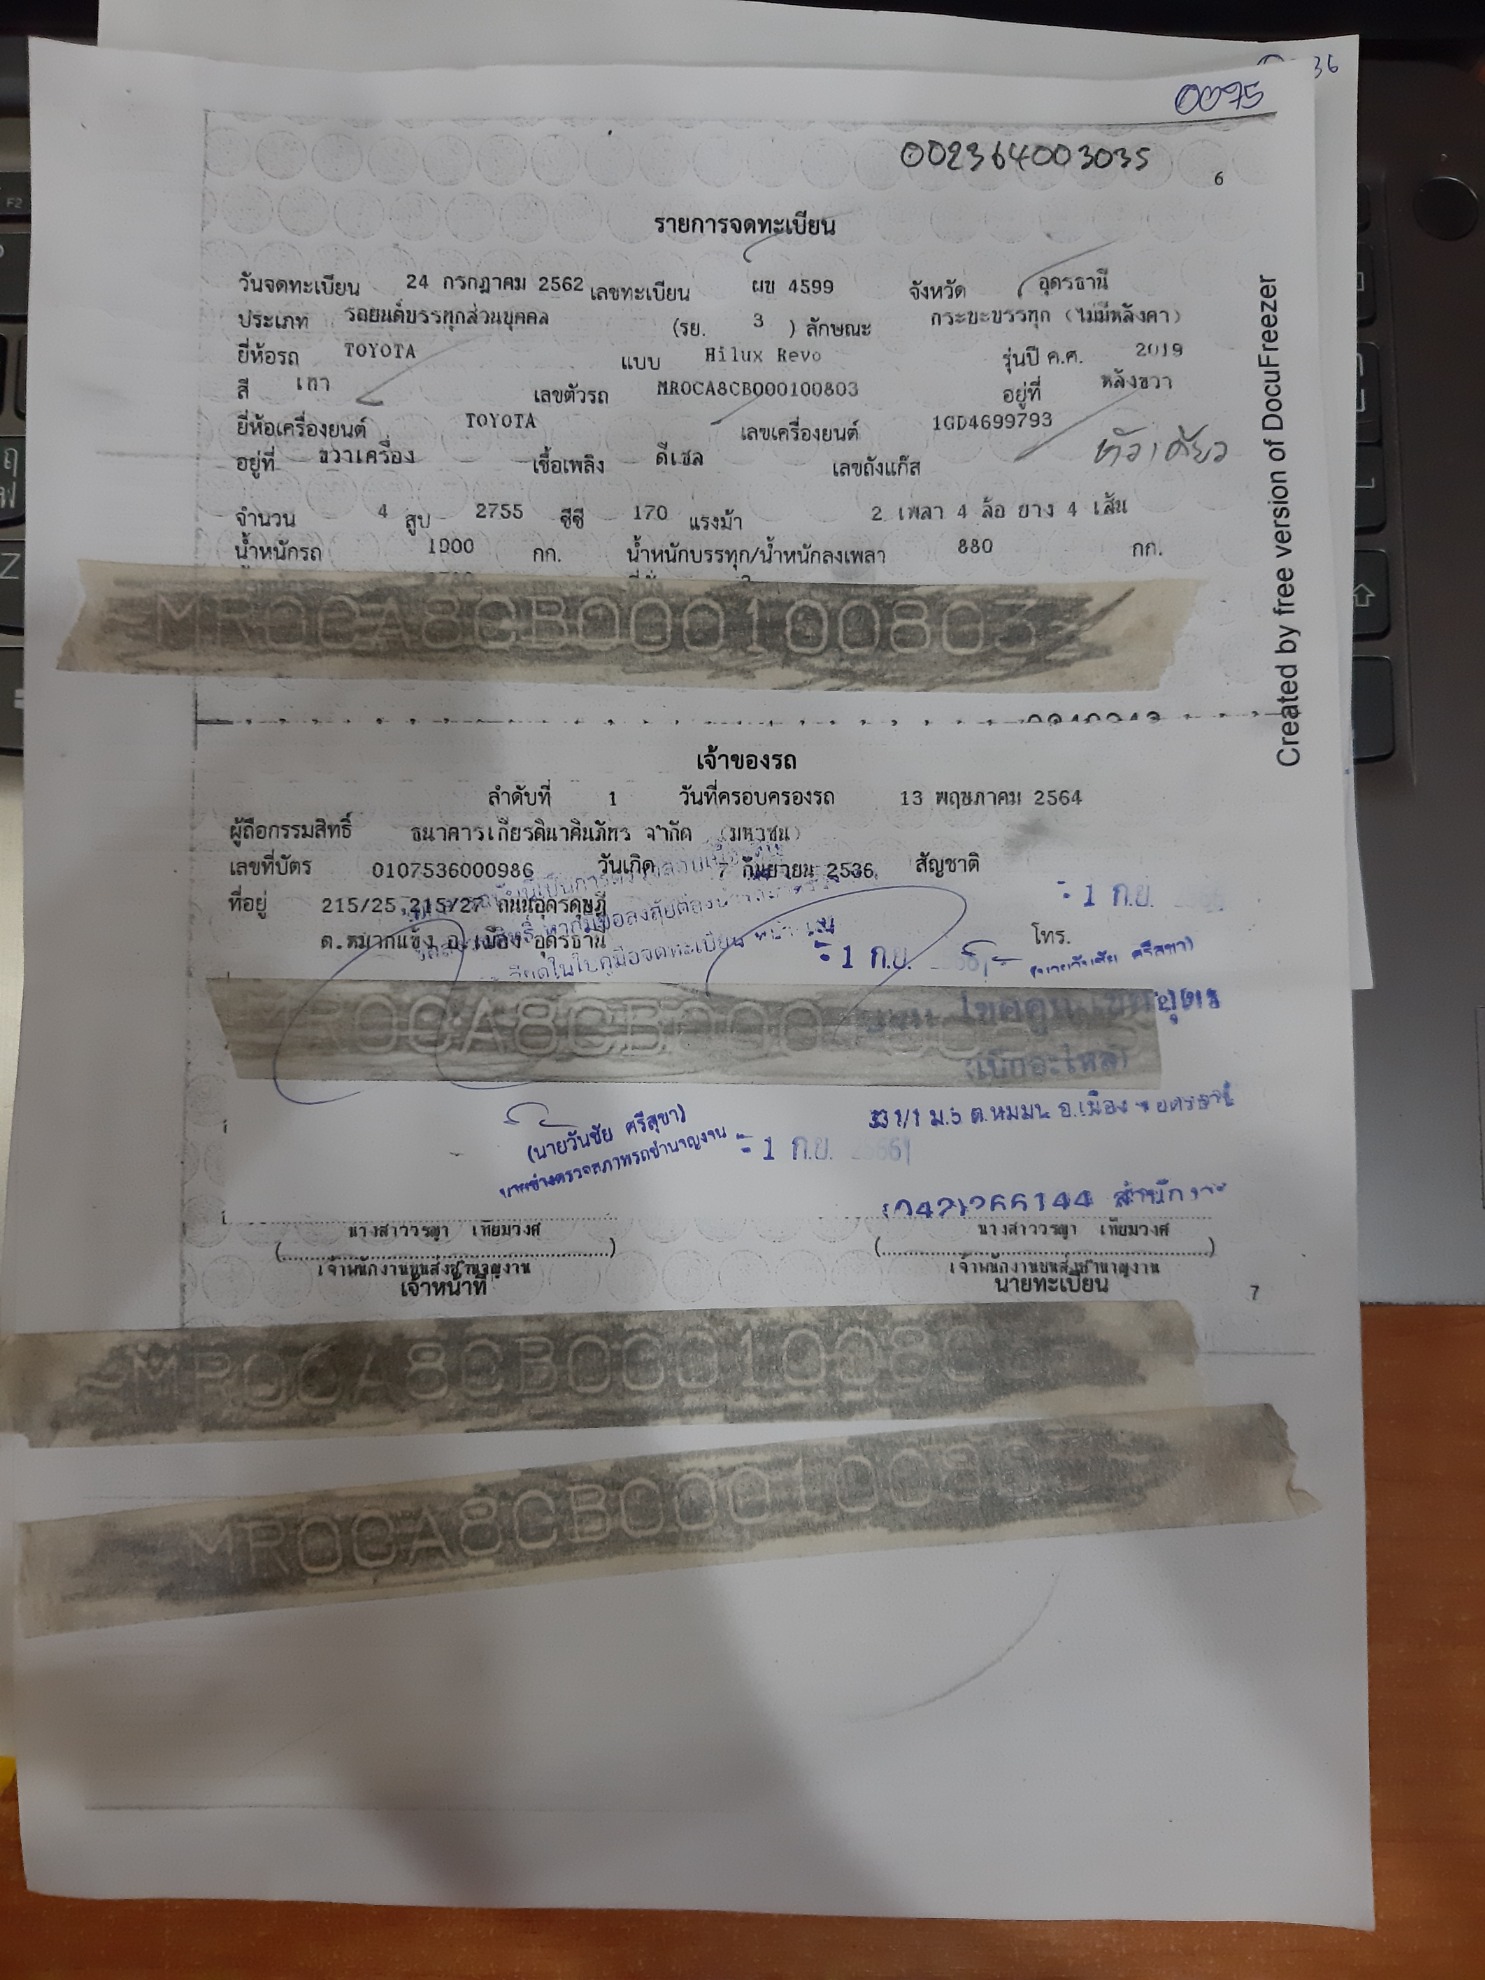 0095
36
002364003035
6
รายการจดทะเบียน
วันจดทะเบียน 24 กรกฎาคม 2562 เลขทะเบียน ผข 4599 จังหวัด อุดรธานี
ประเภท รถยนต์บรรทุกส่วนบุคคล (รย. 3 ) ลักษณะ กระบะบรรทุก (ไม่มีหลังคา)
ยี่ห้อรถ TOYOTA แบบ Hilux Revo รุ่นปี ค.ศ. 2019
สี เทา เลขตัวรถ MR0CA8CB000100803 อยู่ที่ หลังขวา
ยี่ห้อเครื่องยนต์ TOYOTA เลขเครื่องยนต์ 1GD4699793
อยู่ที่ ขวาเครื่อง เชื้อเพลิง ดีเซล เลขถังแก๊ส
หัวเดียว
จำนวน 4 สูบ 2755 ซีซี 170 แรงม้า 2 เพลา 4 ล้อ ยาง 4 เส้น
น้ำหนักรถ 1900 กก. น้ำหนักบรรทุก/น้ำหนักลงเพลา 880 กก.
MR0CA8CB000100803
Created by free version of DocuFreezer
เจ้าของรถ
ลำดับที่ 1 วันที่ครอบครองรถ 13 พฤษภาคม 2564
ผู้ถือกรรมสิทธิ์ ธนาคารเกียรตินาคินภัทร จำกัด (มหาชน)
เลขที่บัตร 0107536000986 วันเกิด 7 กันยายน 2536 สัญชาติ
ที่อยู่ 215/25,215/27 ถนนอุดรดุษฎี
- 1 ก.ย.
ต.หมากแข้ง อ.เมือง อุดรธานี
โทร.
- 1 ก.ย.
(นายวันชัย ศรีสุขา)
R0CA8CB000
(เบิกอะไหล่)
331/1 ม.5 ต.หมูม่น อ.เมือง จ.อุดรธานี
(นายวันชัย ศรีสุขา)
นายช่างตรวจสภาพรถชำนาญงาน
- 1 ก.ย. 2566
(042)266144 สำนักงาน
นางสาววรญา เทียมวงศ์ นางสาววรญา เทียมวงศ์
เจ้าพนักงานขนส่งชำนาญงาน เจ้าพนักงานขนส่งชำนาญงาน
เจ้าหน้าที่ นายทะเบียน
7
MR0CA8CB00010080
MR0CA8CB000100803